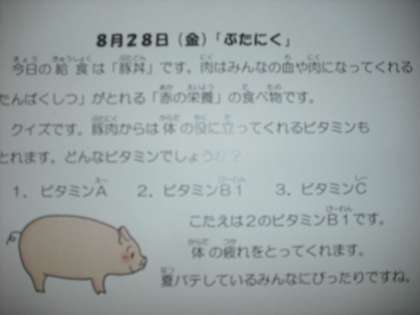 8月28日（金）「ぶたにく」
今日の給食は「豚丼」です。肉はみんなの血や肉になってくれる
たんぱくしつ」がとれる「赤の栄養」の食べ物です。
クイズです。豚肉からは体の役に立ってくれるビタミンも
とれます。どんなビタミンでしょうか？
1．ビタミンA　2．ビタミンB1　3．ビタミンC
こたえは2のビタミンB1です。
体の疲れをとってくれます。
夏バテしているみんなにぴったりですね。